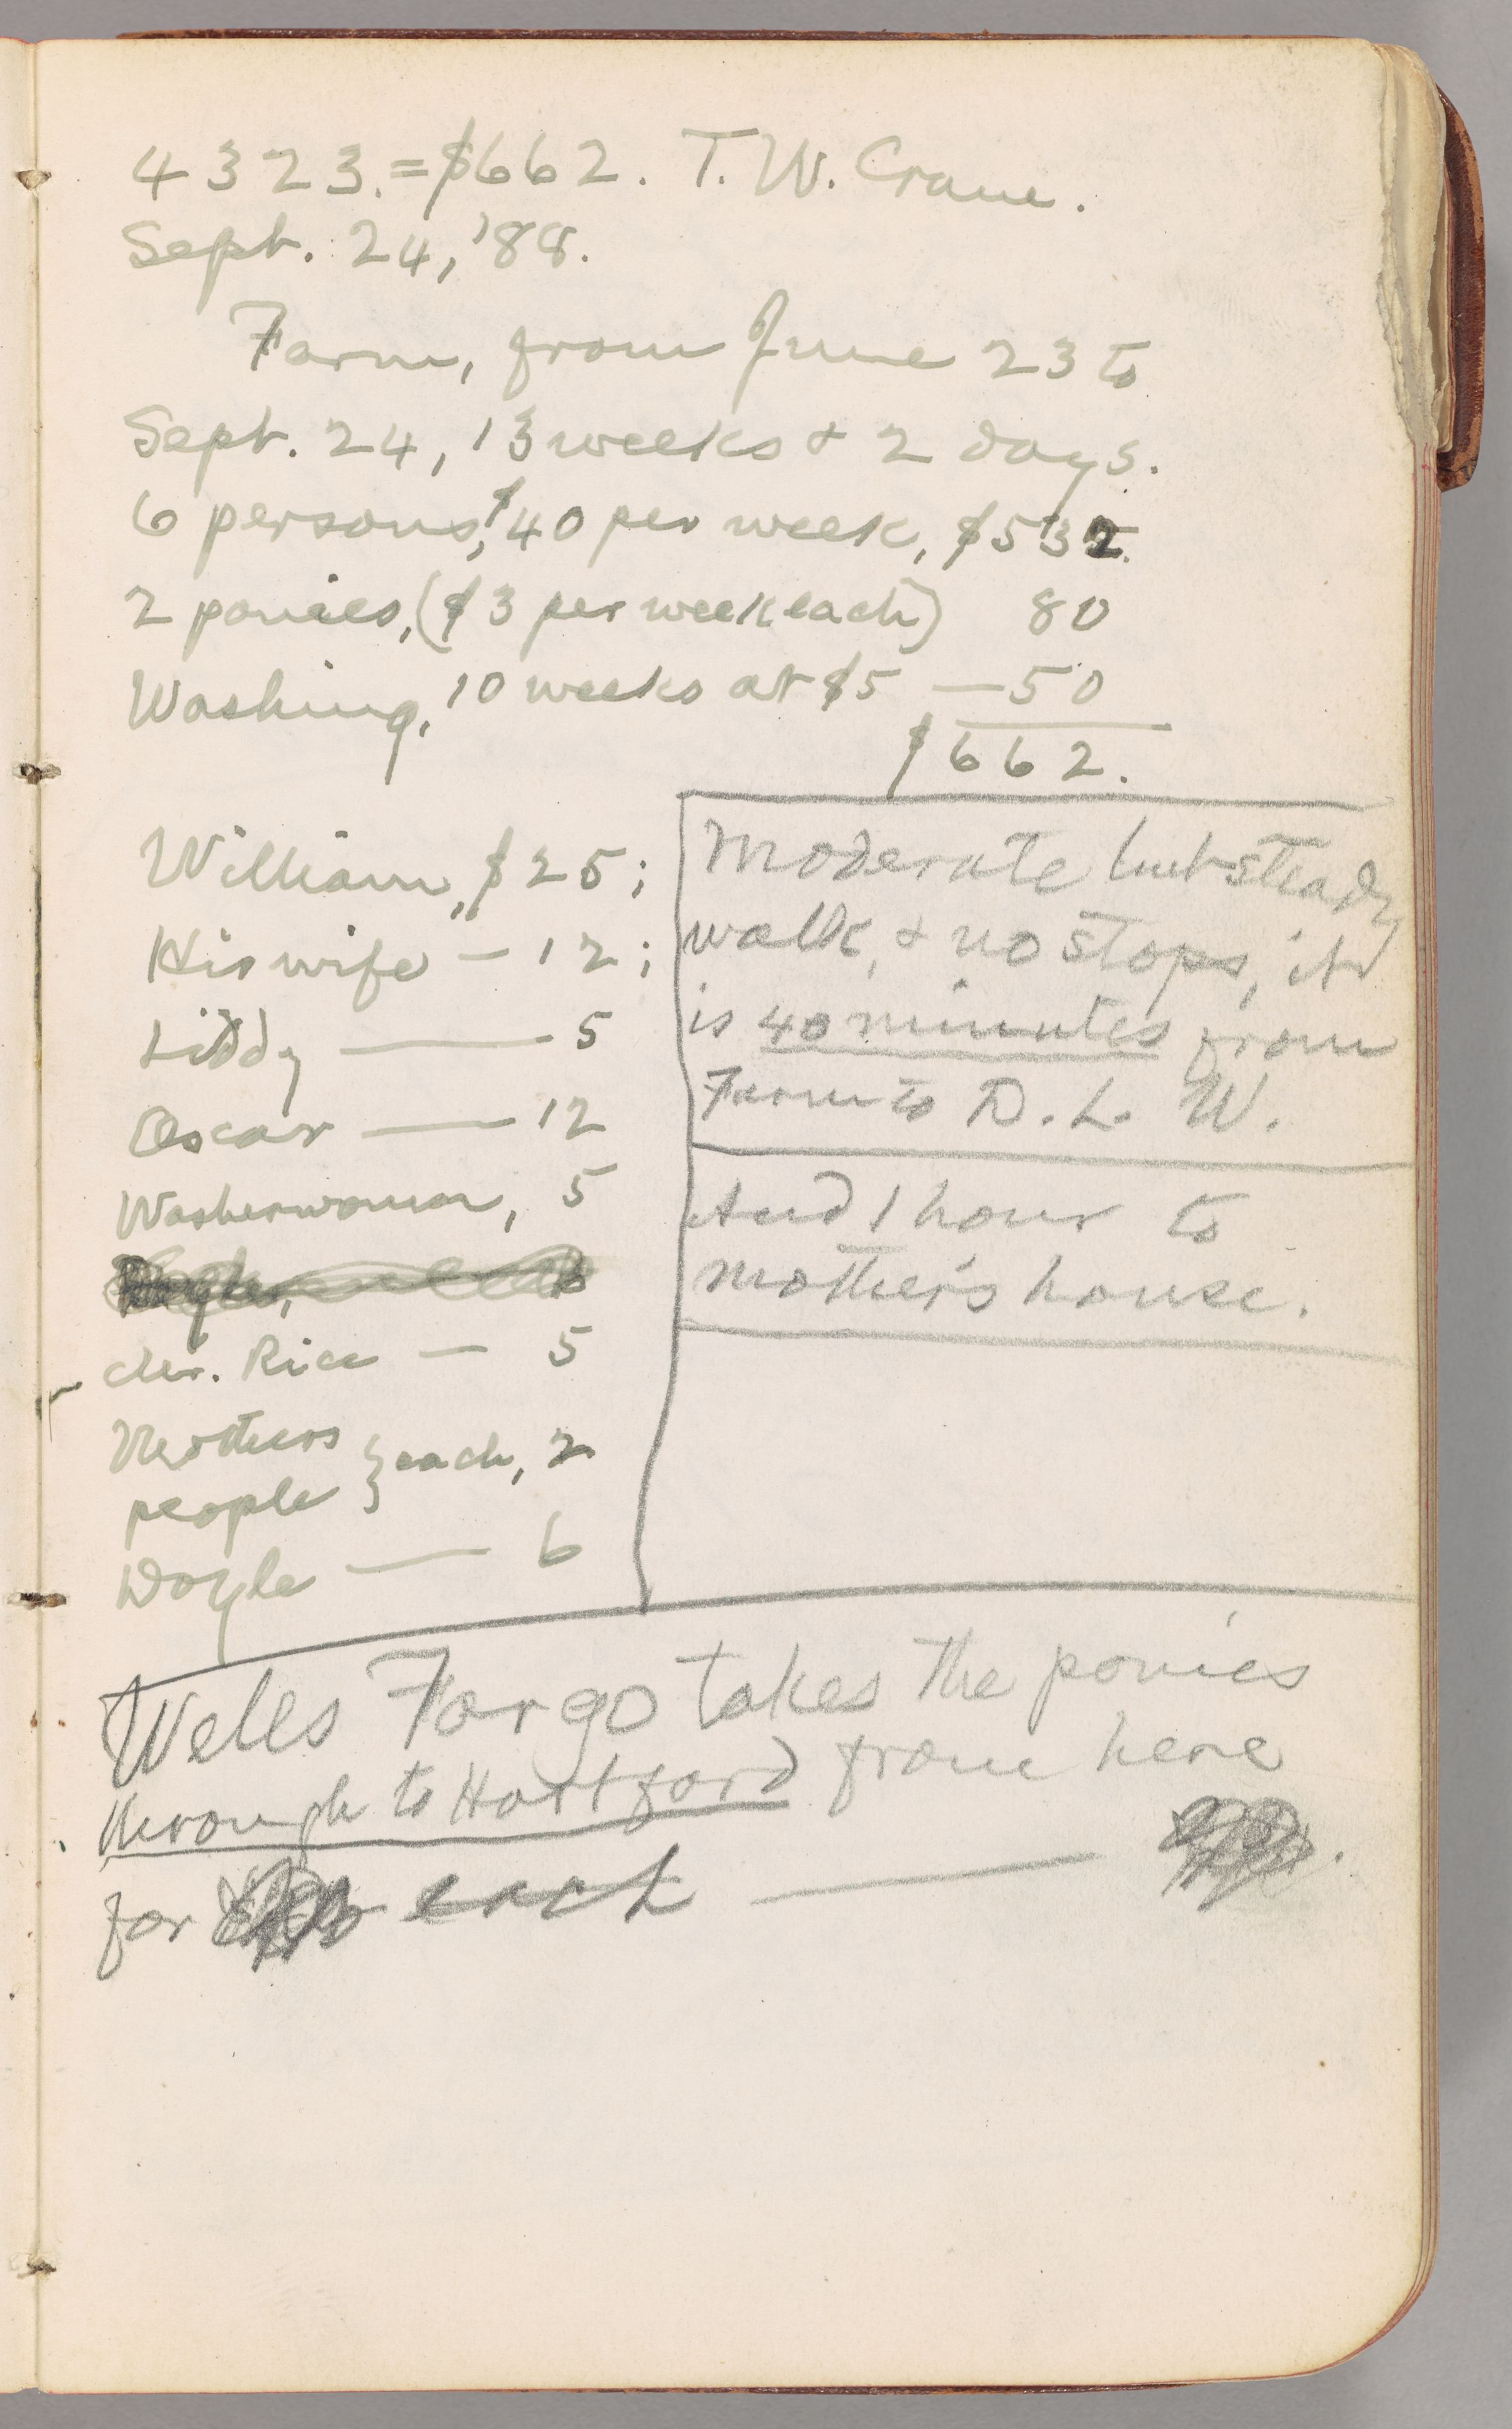 4323. = $662. T. W. Crane.
Sept. 24, '88.
Farm, from June 23 to
Sept. 24, 13 weeks & 2 days.
6 persons, $40 per week, $532.
2 ponies, ($3 per week each) 80
Washing, 10 weeks at $5 — 50
$662.
William, $25;
His wife — 12;
Liddy — 5
Oscar — 12
Washerwoman, 5
Chr. Rice — 5
Mothers
people } each, 2
Doyle — 6
Moderate but steady
walk, & no stops, it
is 40 minutes from
Farm to D. L. W.
And 1 hour to
mother's house.
Wells Fargo takes the ponies
through to Hartford from here
for each — .